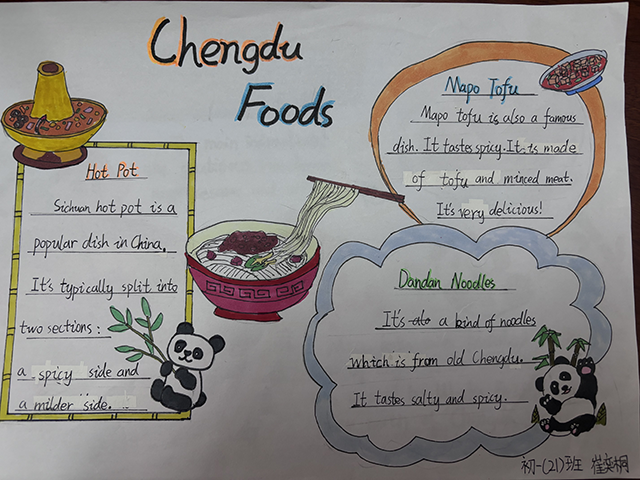 Chengdu
Foods
Hot Pot
Sichuan hot pot is a
popular dish in China.
It's typically split into
two sections:
a spicy side and
a milder side.
Mapo Tofu
Mapo tofu is also a famous
dish. It tastes spicy. It is made
of tofu and minced meat.
It's very delicious!
Dandan Noodles
It's a kind of noodles
which is from old Chengdu.
It tastes salty and spicy.
初一(21)班 崔奕桐